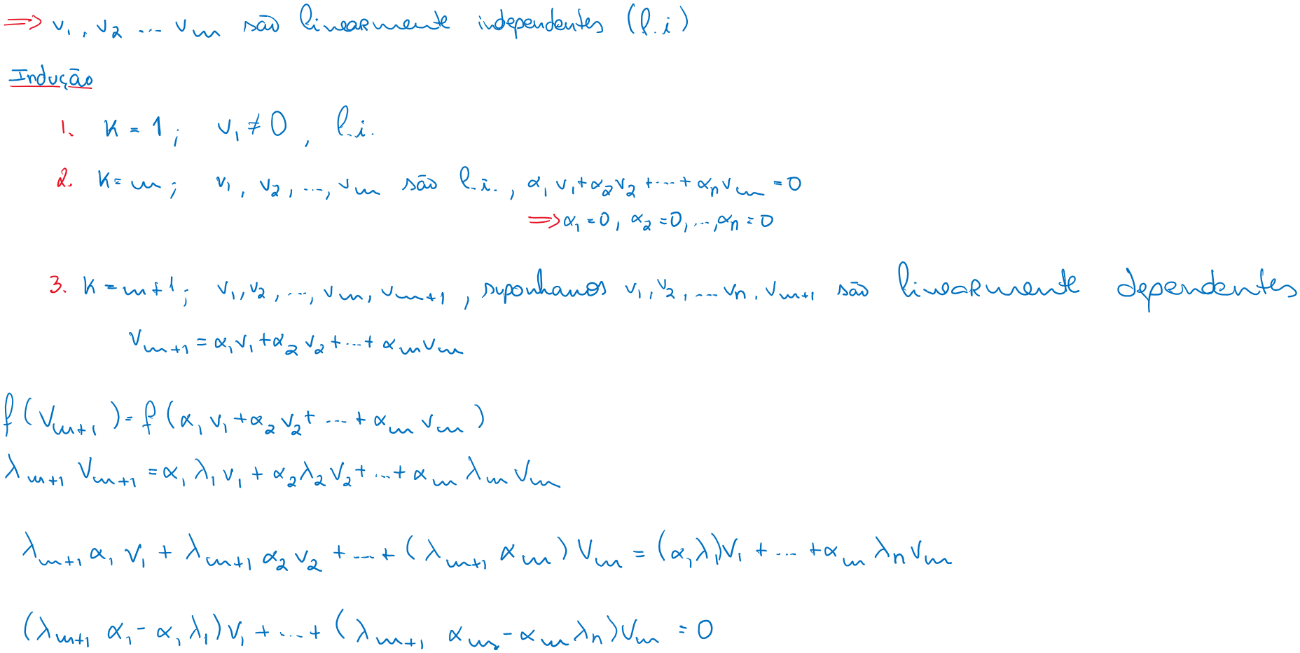 ⇒ v₁, v₂ ... vₘ são linearmente independentes (l.i)
Indução
1. K = 1; v₁ ≠ 0, l.i.
2. K = m; v₁, v₂, ..., vₘ são l.i., α₁v₁ + α₂v₂ + ... + αₙvₘ = 0
⇒ α₁ = 0, α₂ = 0, ..., αₙ = 0
3. K = m+1; v₁, v₂, ..., vₘ, vₘ₊₁, suponhamos v₁, v₂, ... vₙ, vₘ₊₁ são linearmente dependentes
vₘ₊₁ = α₁v₁ + α₂v₂ + ... + αₘvₘ
f(vₘ₊₁) = f(α₁v₁ + α₂v₂ + ... + αₘvₘ)
λₘ₊₁ vₘ₊₁ = α₁λ₁v₁ + α₂λ₂v₂ + ... + αₘλₘvₘ
λₘ₊₁α₁v₁ + λₘ₊₁α₂v₂ + ... + (λₘ₊₁αₘ)vₘ = (α₁λ₁)v₁ + ... + αₘλₙvₘ
(λₘ₊₁α₁ - α₁λ₁)v₁ + ... + (λₘ₊₁αₘ - αₘλₙ)vₘ = 0